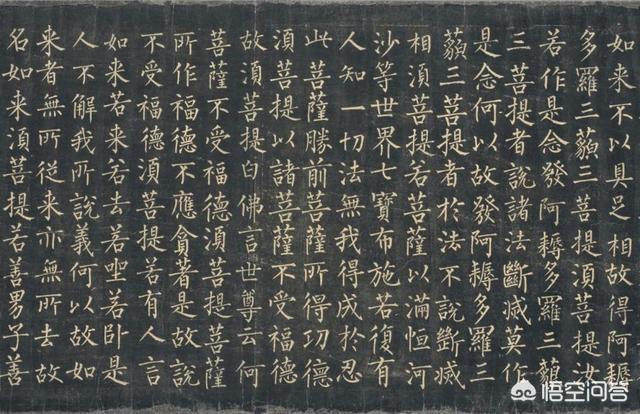 如来不以具足相故得阿耨
多羅三藐三菩提湏菩提汝
若作是念發阿耨多羅三藐
三菩提者說諸法斷滅莫作
是念何以故發阿耨多羅三
藐三菩提者於法不說斷滅
相湏菩提若菩薩以滿恒河
沙等世界七寶布施若復有
人知一切法無我得成於忍
此菩薩勝前菩薩所得功德
湏菩提以諸菩薩不受福德
故湏菩提白佛言世尊云何
菩薩不受福德湏菩提菩薩
所作福德不應貪著是故說
不受福德湏菩提若有人言
如来若来若去若坐若卧是
人不解我所說義何以故如
来者無所從来亦無所去故
名如来湏菩提若善男子善
悟空问答